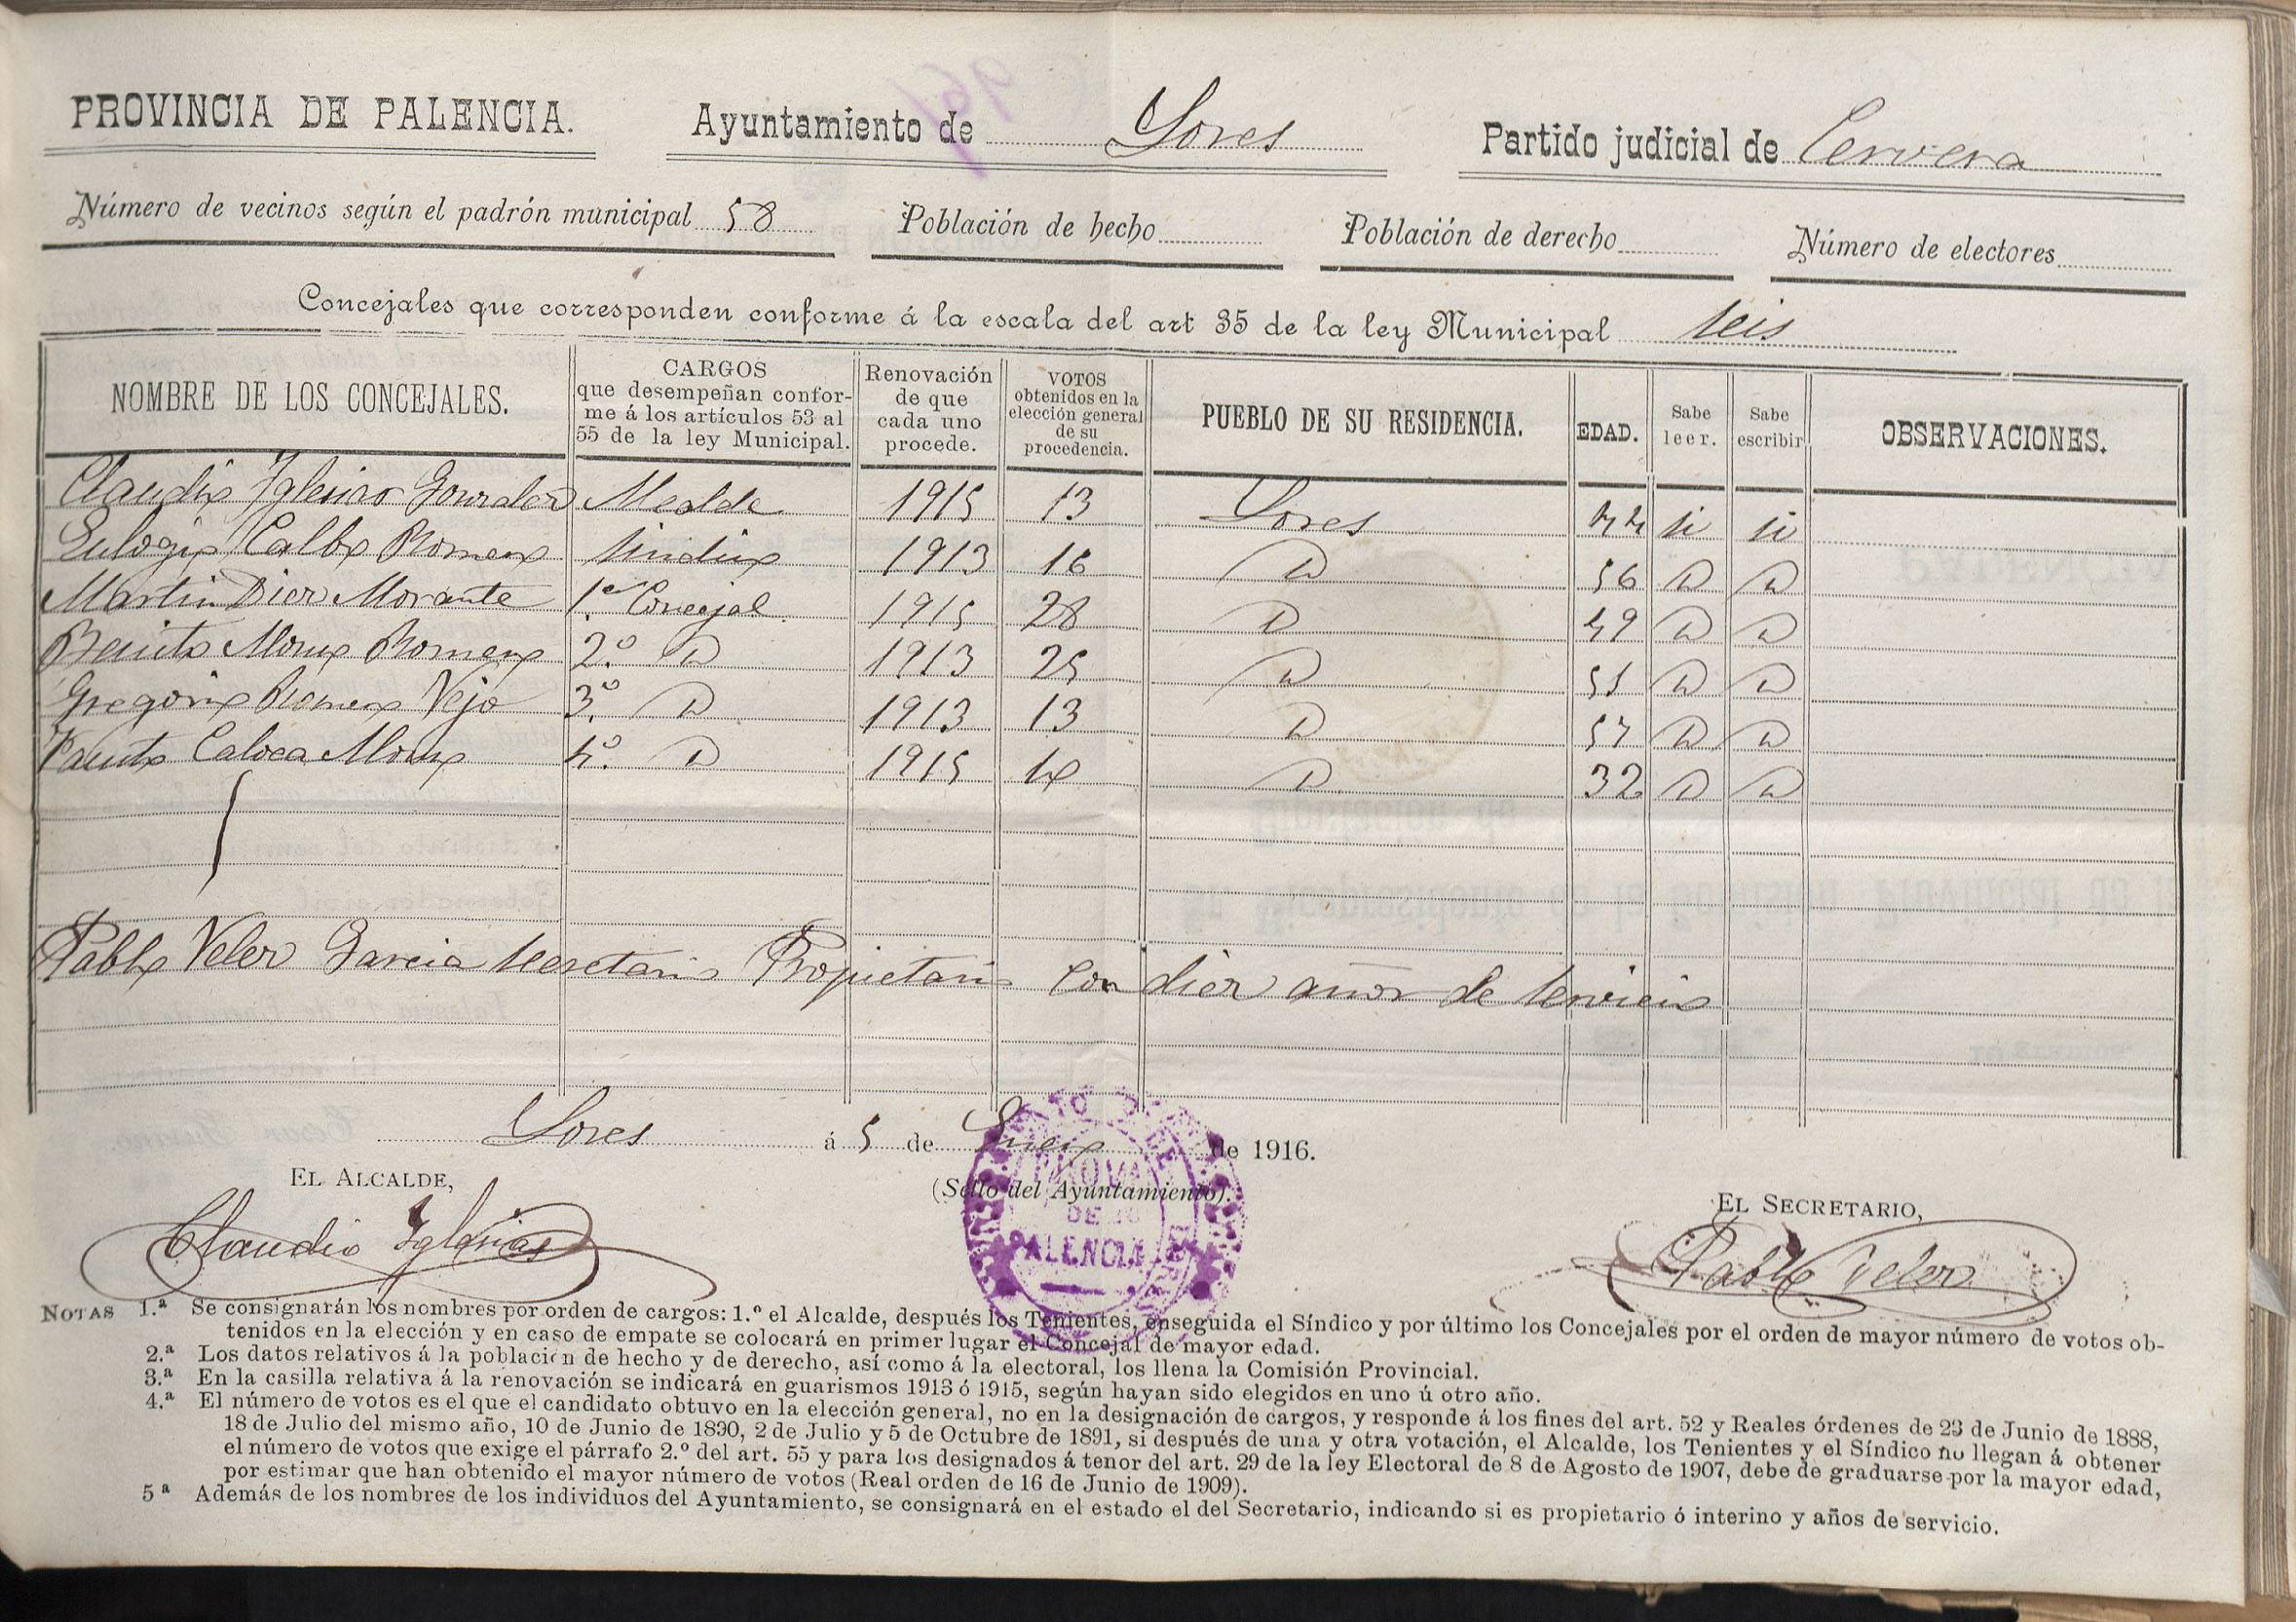 PROVINCIA DE PALENCIA. Ayuntamiento de Lores Partido judicial de Cervera
Número de vecinos según el padrón municipal 58 Población de hecho Población de derecho Número de electores
Concejales que corresponden conforme á la escala del art 35 de la ley Municipal seis
NOMBRE DE LOS CONCEJALES. CARGOS que desempeñan conforme á los artículos 53 al 55 de la ley Municipal. Renovación de que cada uno procede. VOTOS obtenidos en la elección general de su procedencia. PUEBLO DE SU RESIDENCIA. EDAD. Sabe leer. Sabe escribir OBSERVACIONES.
Claudio Iglesias Gonzalez Alcalde 1915 13 Lores 44 si si
Eulogio Calbo Romero Sindico 1913 16 D 56 D D
Martin Diez Morante 1er Concejal 1915 28 D 49 D D
Benito Monux Romero 2.º D 1913 25 D 51 D D
Gregorio Romero Vejo 3.º D 1913 13 D 57 D D
Fausto Caloca 4.º D 1915 D 32 D D
Pablo Velez Garcia Secretario Propietario con diez años de servicio
Lores á 5 de Enero de 1916.
EL ALCALDE, (Sello del Ayuntamiento). EL SECRETARIO,
PALENCIA
Claudio Iglesias Pablo Velez
NOTAS 1.ª Se consignarán los nombres por orden de cargos: 1.º el Alcalde, después los Tenientes, enseguida el Síndico y por último los Concejales por el orden de mayor número de votos ob-
tenidos en la elección y en caso de empate se colocará en primer lugar el Concejal de mayor edad.
2.ª Los datos relativos á la población de hecho y de derecho, así como á la electoral, los llena la Comisión Provincial.
3.ª En la casilla relativa á la renovación se indicará en guarismos 1913 ó 1915, según hayan sido elegidos en uno ú otro año.
4.ª El número de votos es el que el candidato obtuvo en la elección general, no en la designación de cargos, y responde á los fines del art. 52 y Reales órdenes de 23 de Junio de 1888,
18 de Julio del mismo año, 10 de Junio de 1890, 2 de Julio y 5 de Octubre de 1891, si después de una y otra votación, el Alcalde, los Tenientes y el Síndico no llegan á obtener
el número de votos que exige el párrafo 2.º del art. 55 y para los designados á tenor del art. 29 de la ley Electoral de 8 de Agosto de 1907, debe de graduarse por la mayor edad,
por estimar que han obtenido el mayor número de votos (Real orden de 16 de Junio de 1909).
5ª Además de los nombres de los individuos del Ayuntamiento, se consignará en el estado el del Secretario, indicando si es propietario ó interino y años de servicio.